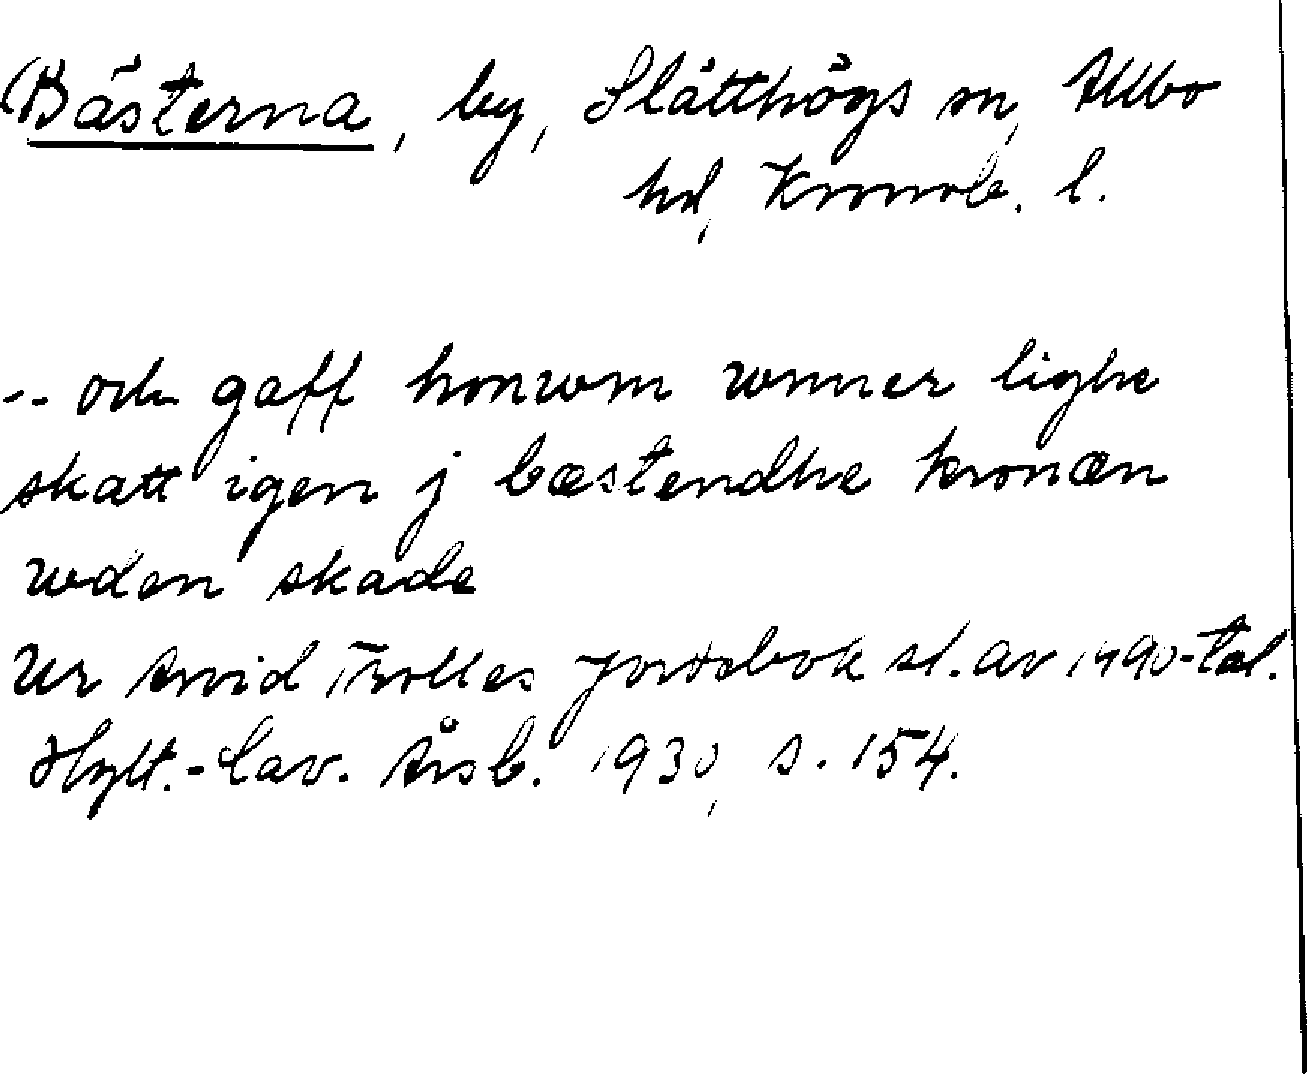 Bästerna, by, Slätthögs sn, Allbo
hd, Kronob. l.
-- och gaff honwm wnner lighe
skatt igen j bæstendhe kronæn
wden skade
Ur Arvid Trolles jordebok sl. av 1490-tal.
Hylt.-Cav. Årsb. 1930, s. 154.